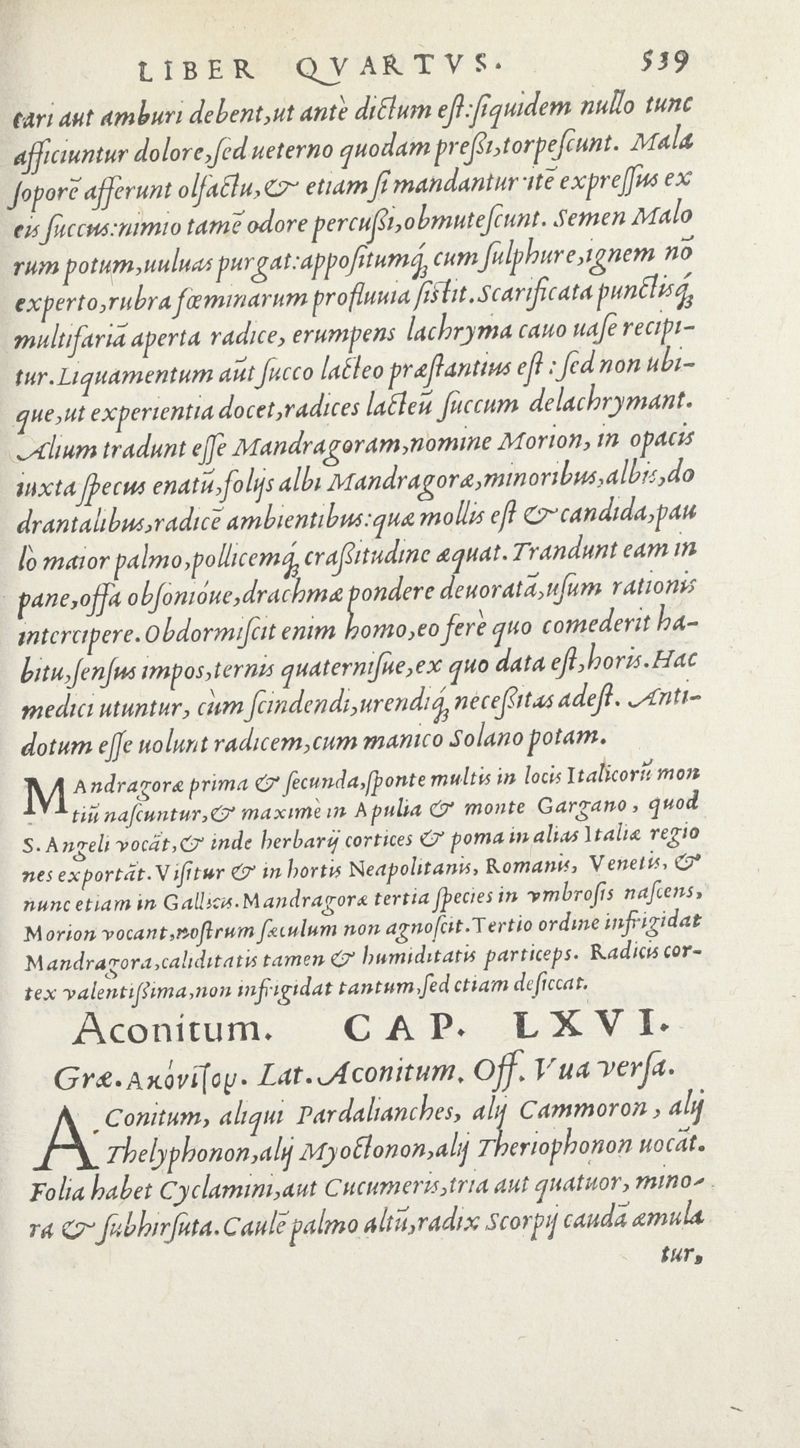 LIBER QVARTVS. 539
cari aut amburi debent,ut antè dictum est:siquidem nullo tunc
afficiuntur dolore,sed ueterno quodam preßi,torpescunt. Mala
soporē afferunt olfactu,& etiam si mandantur:itē expressus ex
eis succus:nimio tamē odore percußi,obmutescunt. Semen Malo
rum potum,uuluas purgat:appositumq́; cum sulphure,ignem nō
experto,rubra fœminarum profluuia sistit.Scarificata punctisq́;
multifariā aperta radice, erumpens lachryma cauo uase recipi-
tur.Liquamentum aūt succo lacteo præstantius est : sed non ubi-
que,ut experientia docet,radices lacteū succum delachrymant.
Alium tradunt esse Mandragoram,nomine Morion, in opacis
iuxta specus enatū,folijs albi Mandragoræ,minoribus,albis,do
drantalibus,radicē ambientibus:quæ mollis est & candida,pau
lò maior palmo,pollicemq́; craßitudine æquat.Trandunt eam in
pane,offa obsonióue,drachmæ pondere deuoratā,usum rationis
intercipere.Obdormiscit enim homo,eo ferè quo comederit ha-
bitu,sensus impos,ternis quaternisue,ex quo data est,horis.Hac
medici utuntur, cùm scindendi,urendiq́; neceßitas adest. Anti-
dotum esse uolunt radicem,cum manico Solano potam.
MAndragoræ prima & secunda,sponte multis in locis Italicorū mon
tiū nascuntur,& maximè in Apulia & monte Gargano, quod
S. Angeli vocāt,& inde herbarij cortices & poma in alias Italiæ regio
nes exportāt.Visitur & in hortis Neapolitanis, Romanis, Venetis, &
nunc etiam in Gallicis.Mandragoræ tertia species in vmbrosis nascens,
Morion vocant,nostrum sæculum non agnoscit.Tertio ordine infrigidat
Mandragora,caliditatis tamen & humiditatis particeps. Radicis cor-
tex valentißima,non infrigidat tantum,sed etiam desiccat.
Aconitum. CAP. LXVI.
Græ.Ακόνιτον. Lat. Aconitum. Off. Vua versa.
AConitum, aliqui Pardalianches, alij Cammoron, alij
Thelyphonon,alij Myoctonon,alij Theriophonon uocāt.
Folia habet Cyclamini,aut Cucumeris,tria aut quatuor, mino-
ra & subhirsuta.Caulē palmo altū,radix Scorpij caudā æmula
tur,